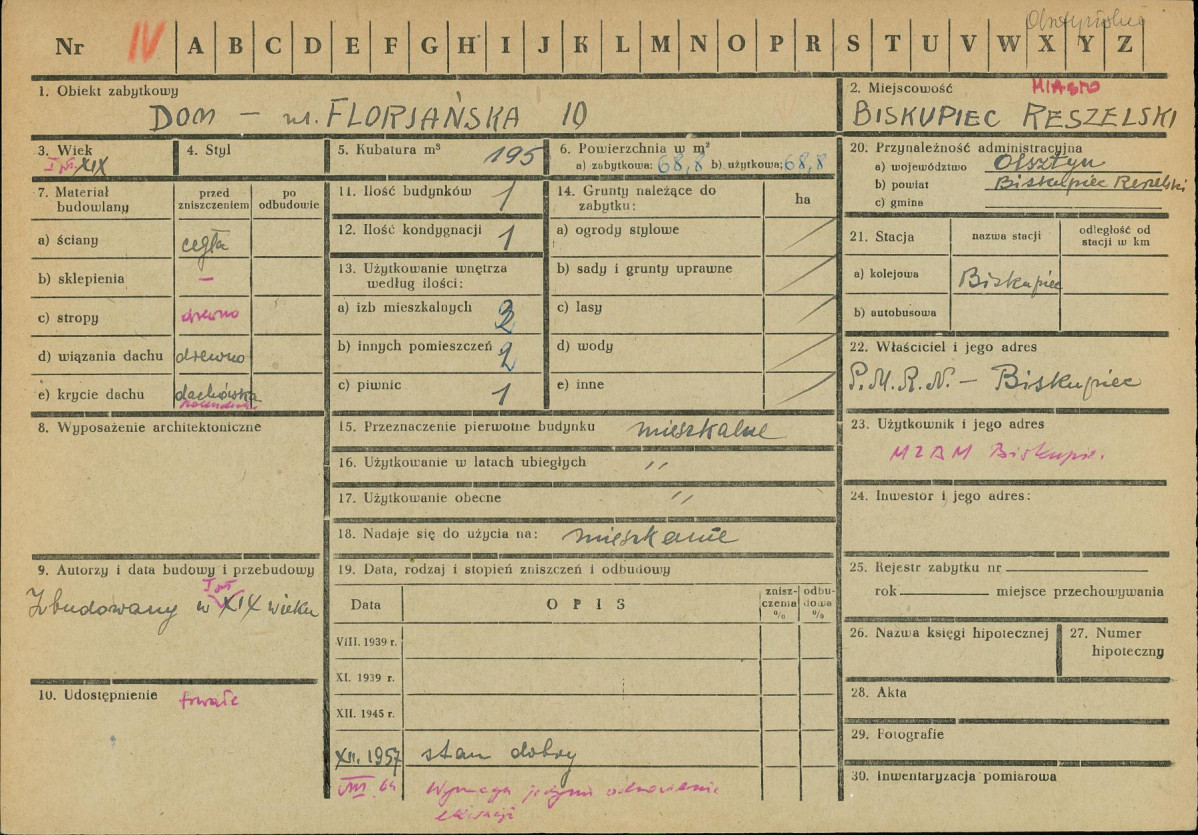 Nr IV A B C D E F G H I J K L M N O P R S T U V W X Y Z
1. Obiekt zabytkowy
DOM - ul. FLORJAŃSKA 10
2. Miejscowość MIASTO
BISKUPIEC RESZELSKI
3. Wiek
XIX
4. Styl
5. Kubatura m³ 195
6. Powierzchnia w m²
a) zabytkowa: 68,8 b) użytkowa; 68,8
20. Przynależność administracyjna
a) województwo Olsztyn
b) powiat Biskupiec Reszelski
c) gmina
7. Materiał budowlany
przed zniszczeniem
po odbudowie
a) ściany cegła
b) sklepienia —
c) stropy drewno
d) wiązania dachu drewno
e) krycie dachu dachówska
11. Ilość budynków 1
12. Ilość kondygnacji 1
13. Użytkowanie wnętrza
według ilości:
a) izb mieszkalnych
b) innych pomieszczeń 2
c) piwnic 1
14. Grunty należące do
zabytku:
ha
a) ogrody stylowe
b) sady i grunty uprawne
c) lasy
d) wody
e) inne
21. Stacja
nazwa stacji
odległość od
stacji w km
a) kolejowa Biskupiec
b) autobusowa
22. Właściciel i jego adres
P.M.R.N. - Biskupiec
8. Wyposażenie architektoniczne
15. Przeznaczenie pierwotne budynku mieszkalne
16. Użytkowanie w latach ubiegłych "
17. Użytkowanie obecne "
18. Nadaje się do użycia na: mieszkanie
23. Użytkownik i jego adres
MZBM Biskupie.
24. Inwestor i jego adres:
9. Autorzy i data budowy i przebudowy
Zbudowany w XIX wieku
10. Udostępnienie trwałe
19. Data, rodzaj i stopień zniszczeń i odbudowy
Data
OPIS
znisz-
czenia
%
odbu-
dowa
%
VIII. 1939 r.
XI. 1939 r.
XII. 1945 r.
XII. 1957 stan dobry
VIII 64 Wymaga jedynie odnowienia
elewacji
25. Rejestr zabytku nr
rok miejsce przechowywania
26. Nazwa księgi hipotecznej
27. Numer
hipoteczny
28. Akta
29. Fotografie
30. Inwentaryzacja pomiarowa